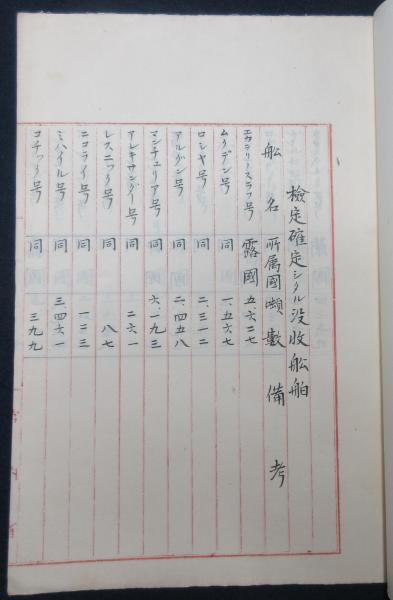 檢定確定シタル没收舩舶
舩名 所属國 噸數 備考
エカテリノスラフ号 露國 五、六二七
ムクデン号 同 一、五六七
ロシヤ号 同 二、三一二
アルグン号 同 二、四五八
マンチユリア号 同 六、一九三
アレキサンダー号 同 二六一
レスニツク号 同 八七
ニコライ号 同 一二三
ミハイル号 同 三、四六一
コチツク号 同 三九九